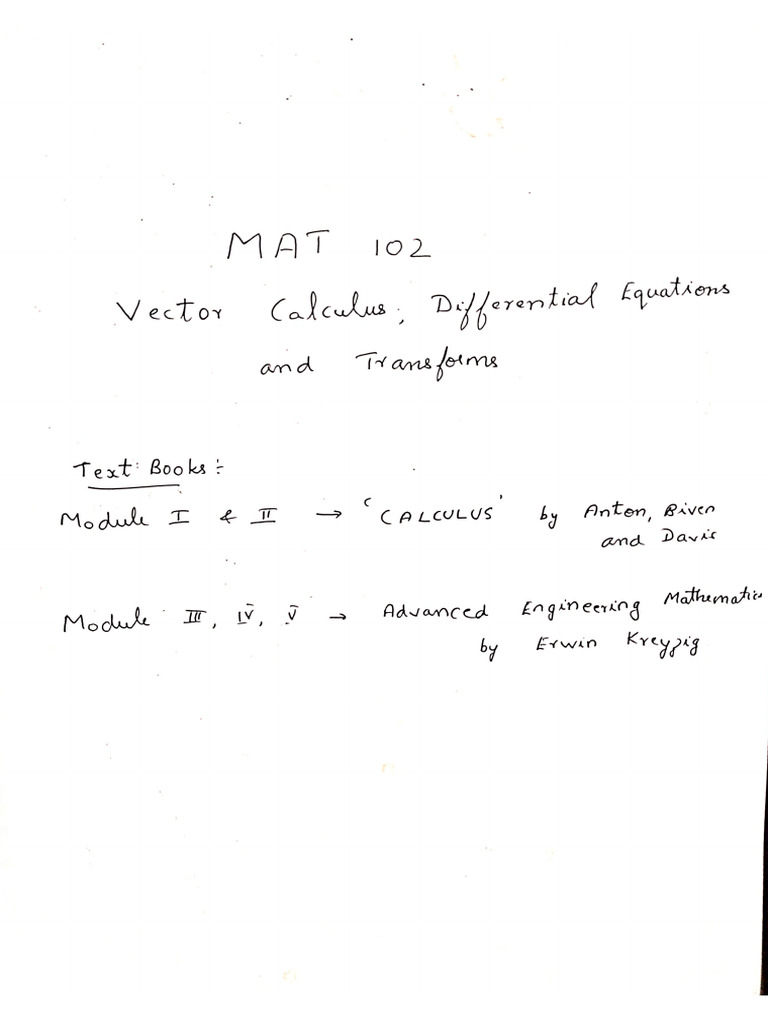 MAT 102
Vector Calculus, Differential Equations
and Transforms
Text Books :-
Module I & II → 'CALCULUS' by Anton, Biven
and Davis
Module III, IV, V → Advanced Engineering Mathematics
by Erwin Kreyzig